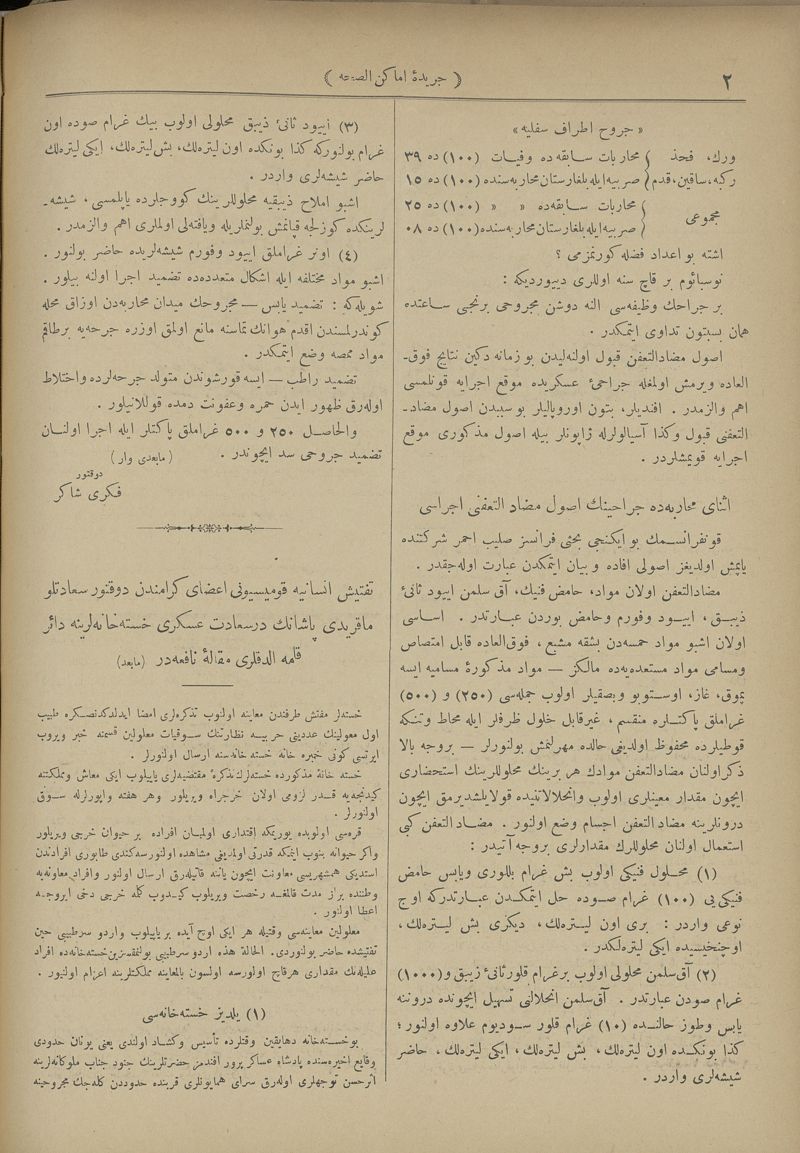 ٢
﴿ جريدهٔ اماكن الصحه ﴾
« جروح اطراف سفليه »
ورك، فخذ } محاربات سابقه‌ده وفيات (١٠٠) ده ٣٩
ركبه، ساقين، قدم } صربيه ايله بلغارستان محاربه‌سنده (١٠٠) ده ١٥
مجموعى } محاربات سابقه‌ده « « (١٠٠) ده ٢٥
صربيه ايله بلغارستان محاربه‌سنده (١٠٠) ده ٠٨
اشته بو اعداد فضله كورنمزمى ؟
نوسبائوم بر قاچ سنه اوللرى ديیورديكه :
بر جراحك وظيفه‌سى النه دوشن مجروحى برنجى ساعتده
همان بسبتون تداوى ايتمكدر .
اصول مضادالتعفن قبول اولنه‌ليدن بو زمانه دكين نتايج فوق‌ـ
العاده ويرمش اولمغله جراحئ عسكريده موقع اجرايه قونلمسى
اهم والزمدر . افنديلر، بتون اوروپاليلر بو سببدن اصول مضادـ
التعفنى قبول وكذا آسيالولرله ژاپونلر بيله اصول مذكورى موقع
اجرايه قويمشلردر .
اثناى محاربه‌ده جراحينك اصول مضاد التعفنى اجراسى
قونفرانسمك بو ايكنجى بحثى فرانسز صليب احمر شركتنده
ياپمش اولديغز اصولى افاده و بيان ايتمكدن عبارت اوله‌جقدر .
مضادالتعفن اولان مواد، حامض فنيك، آق سلمن اييود ثانئ
ذيبق ، اييود وفورم وحامض بوردن عبارتدر . اساسى
اولان اشبو مواد خمسه‌دن بشقه مشبع ، فوق‌العاده قابل امتصاص
ومسامى مواد مستعديه‌ده مالكز — مواد مذكورهٔ مساميه ايسه
پموق، غاز، اوستوبو وبصقيلر اولوب جمله‌سى (٢٥٠) و (٥٠٠)
غراملق پاكتلره منقسم ، غيرقابل خلول ظرفلر ايله محاط وتنكه
قوطيلرده محفوظ اولديغى حالده مهرلنمش بولنورلر — بروجه بالا
ذكر اولنان مضادالتعفن موادك هر برينك محلوللرينك استحضارى
ايچون مقدار معينلرى اولوب وانحلالاتنيده قولايلشديرمق ايچون
درونلرينه مضاد التعفن اجسام وضع اولنور . مضاد التعفن كبى
استعمال اولنان محلوللرك مقدارلرى بروجه آتيدر :
(١) محلول فنيكى اولوب بش غرام بللورى ويابس حامض
فنيكى‌يى (١٠٠) غرام صوده حل ايتمكدن عبارتدركه اوچ
نوعى واردر : برى اون ليتره‌لك ، ديكرى بش ليتره‌لك ،
اوچنجيسيده ايكى ليتره‌لكدر .
(٢) آق‌سلمن محلولى اولوب برغرام قلورثانئ زيبق و(١٠٠٠)
غرام صودن عبارتدر . آق‌سلمن انحلالنى تسهيل ايچونده دروننه
يابس وطوز حالنده (١٠) غرام قلور سوديوم علاوه اولنور ؛
كذا بونكده اون ليتره‌لك ، بش ليتره‌لك ، ايكى ليتره‌لك ، حاضر
شيشه‌لرى واردر .
(٣) اييود ثانئ ذيبق محلولى اولوب بيك غرام صوده اون
غرام بولنوركه كذا بونكده اون ليتره‌لك، بش ليتره‌لك، ايكى ليتره‌لك
حاضر شيشه‌لرى واردر .
اشبو املاح ذيبقيه محلوللرينك كووجلرده ياپلمسى ، شيشه‌ـ
لرينكده كوزلجه قپانمش بولنملريله ويافته‌لى اولملرى اهم والزمدر .
(٤) اونر غراملق اييود وفورم شيشه‌لريده حاضر بولنور .
اشبو مواد مختلفه ايله اشكال متعدده‌ده تضميد اجرا اولنه بيلور .
شويله‌كه : تضميد يابس — مجروحك ميدان محاربه‌دن اوزاق محله
كوندرلمسندن اقدم هوانك تماسنه مانع اولمق اوزره جرحه‌يه برطاقم
مواد ممصه وضع ايتمكدر .
تضميد راطب — ايسه قورشوندن متولد جرحه‌لرده واختلاط
اوله‌رق ظهور ايدن حمره وعفونت دمده قوللانيلور .
والحاصل ٢٥٠ و ٥٠٠ غراملق پاكتلر ايله اجرا اولنان
تضميد جروحى سد ايچوندر . ( مابعدى وار )
دوقتور
فكرى شاكر
تفتيش انسانيه قوميسيونى اعضاى كرامندن دوقتور سعادتلو
ماقريدى پاشانك درسعادت عسكرى خسته‌خانه‌لرينه دائر
قلمه الدقلرى مقالهٔ نافعه‌در (مابعد)
خسته‌لر مفتش طرفندن معاينه اولنوب تذكره‌لرى امضا ايدلدكدنصكره طبيب
اول معولينك عددينى حربيه نظارتنك سوقيات معلولين قسمنه خبر ويروب
ايرتسى كونى خبره خانه خسته خانه‌سنه ارسال اولنورلر .
خسته خانهٔ مذكورده خسته‌لرك تذكرهٔ مقتضيه‌لرى ياپيلوب ايكى معاش ومملكتنه
كيدنجه‌يه قدر لزومى اولان خرجراه ويريلور وهر هفته واپورلرله سوق
اولنورلر .
قره‌سى اولوبده يوريمكه اقتدارى اولميان افراده بر حيوان خرجى ويريلور
واكر حيوانه بنوب ايتمكه قدرتى اولمديغى مشاهده اولنورسه كندى طابورى افرادندن
استديكى همشهريسى معاونت ايچون ياننه قاتيله‌رق ارسال اولنور وافراد معاونه‌يه
وطننده براز مدت قالمغه رخصت ويريلوب كيدوب كلمه خرجى دخى ايروجه
اعطا اولنور .
معلولين معاينه‌سى وقتيله هر ايكى اوچ آيده بر ياپيلوب واردو سرطبيبى حين
تفتيشده حاضر بولنوردى. الحالة هذه اردو سرطبيبى بولنمقسزين خسته‌خانه‌ده افراد
عليله‌نك مقدارى هرقاچ اولورسه اولسون بالمعاينه مملكتلرينه اعزام اولنيور .
(١) يلديز خسته‌خانه‌سى
بوخسته‌خانه دهابقين وقتلرده تأسيس وكشاد اولندى يعنى يونان حدودى
وقايع اخيره‌سنده پادشاه عساكر پرور افندمز حضرتلرينك جنود جناب ملوكانه‌لرينه
اثرحسن توجهلرى اوله‌رق سراى همايونلرى قربنده حدوددن كله‌جك مجروحينه